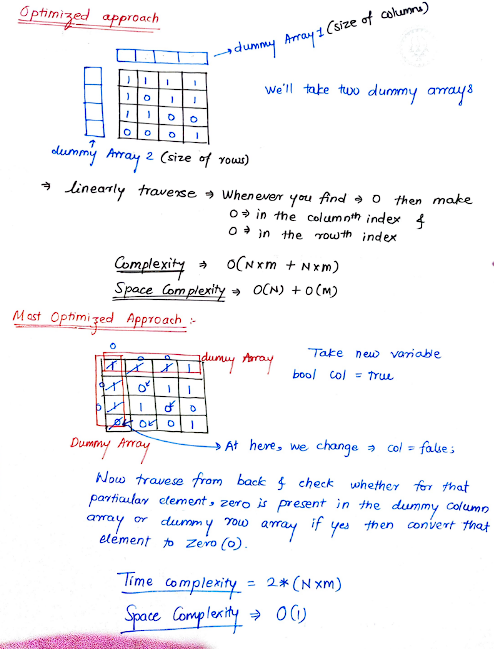 Optimized approach
dummy Array 1 (size of columns)
1 1 1 1
1 0 1 1
1 1 0 0
0 0 0 1
we'll take two dummy arrays
dummy Array 2 (size of rows)
⇒ linearly traverse ⇒ Whenever you find ⇒ 0 then make
0 ⇒ in the columnth index &
0 ⇒ in the rowth index
Complexity ⇒ O(N×m + N×m)
Space Complexity ⇒ O(N) + O(M)
Most Optimized Approach :-
0
0 0
1 1 1 1
dumy Array
Take new variable
bool col = true
0 1 0 1 1
0 1 1 0 0
0 0 0 1
Dummy Array
→ At here, we change ⇒ col = false;
Now travese from back & check whether for that
particular element, zero is present in the dummy column
array or dummy row array if yes then convert that
element to Zero (0).
Time complexity = 2*(N×m)
Space Complexity ⇒ O(1)